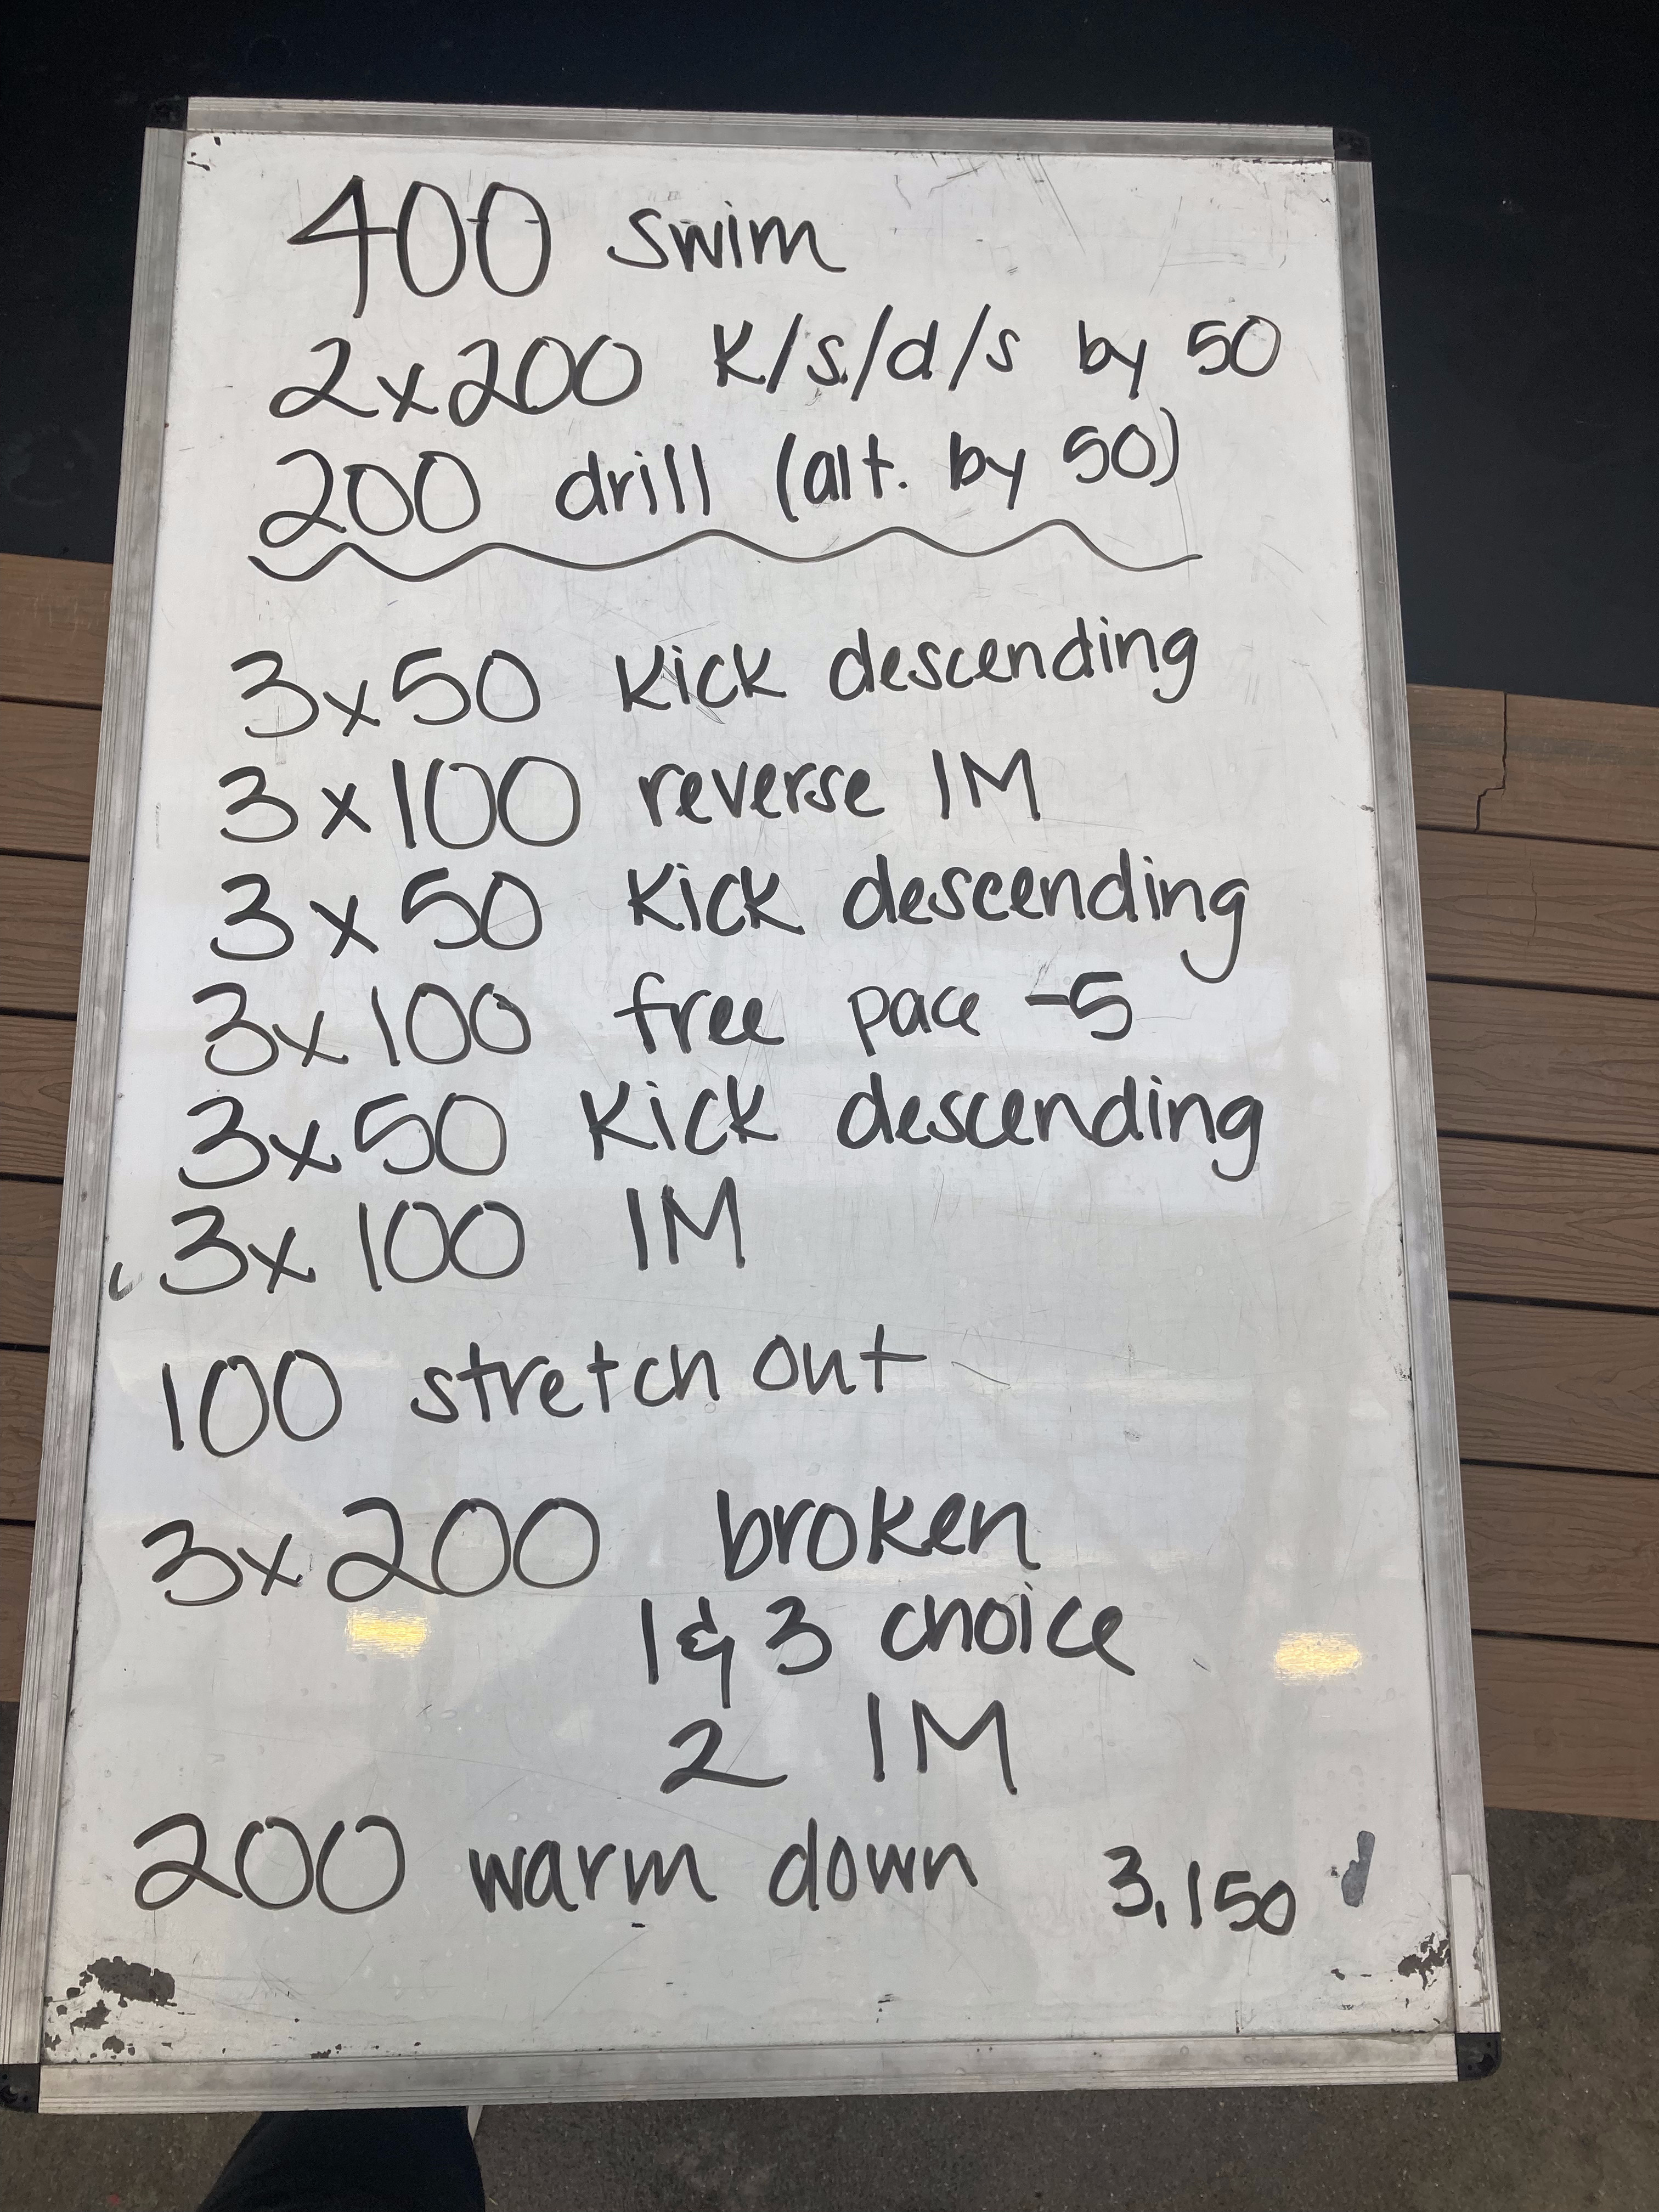 400 swim
2x200 K/s/d/s by 50
200 drill (alt. by 50)
3x50 Kick descending
3x100 reverse IM
3x50 Kick descending
3x100 free pace -5
3x50 Kick descending
3x100 IM
100 stretch out
3x200 broken
1 & 3 choice
2 IM
200 warm down 3,150